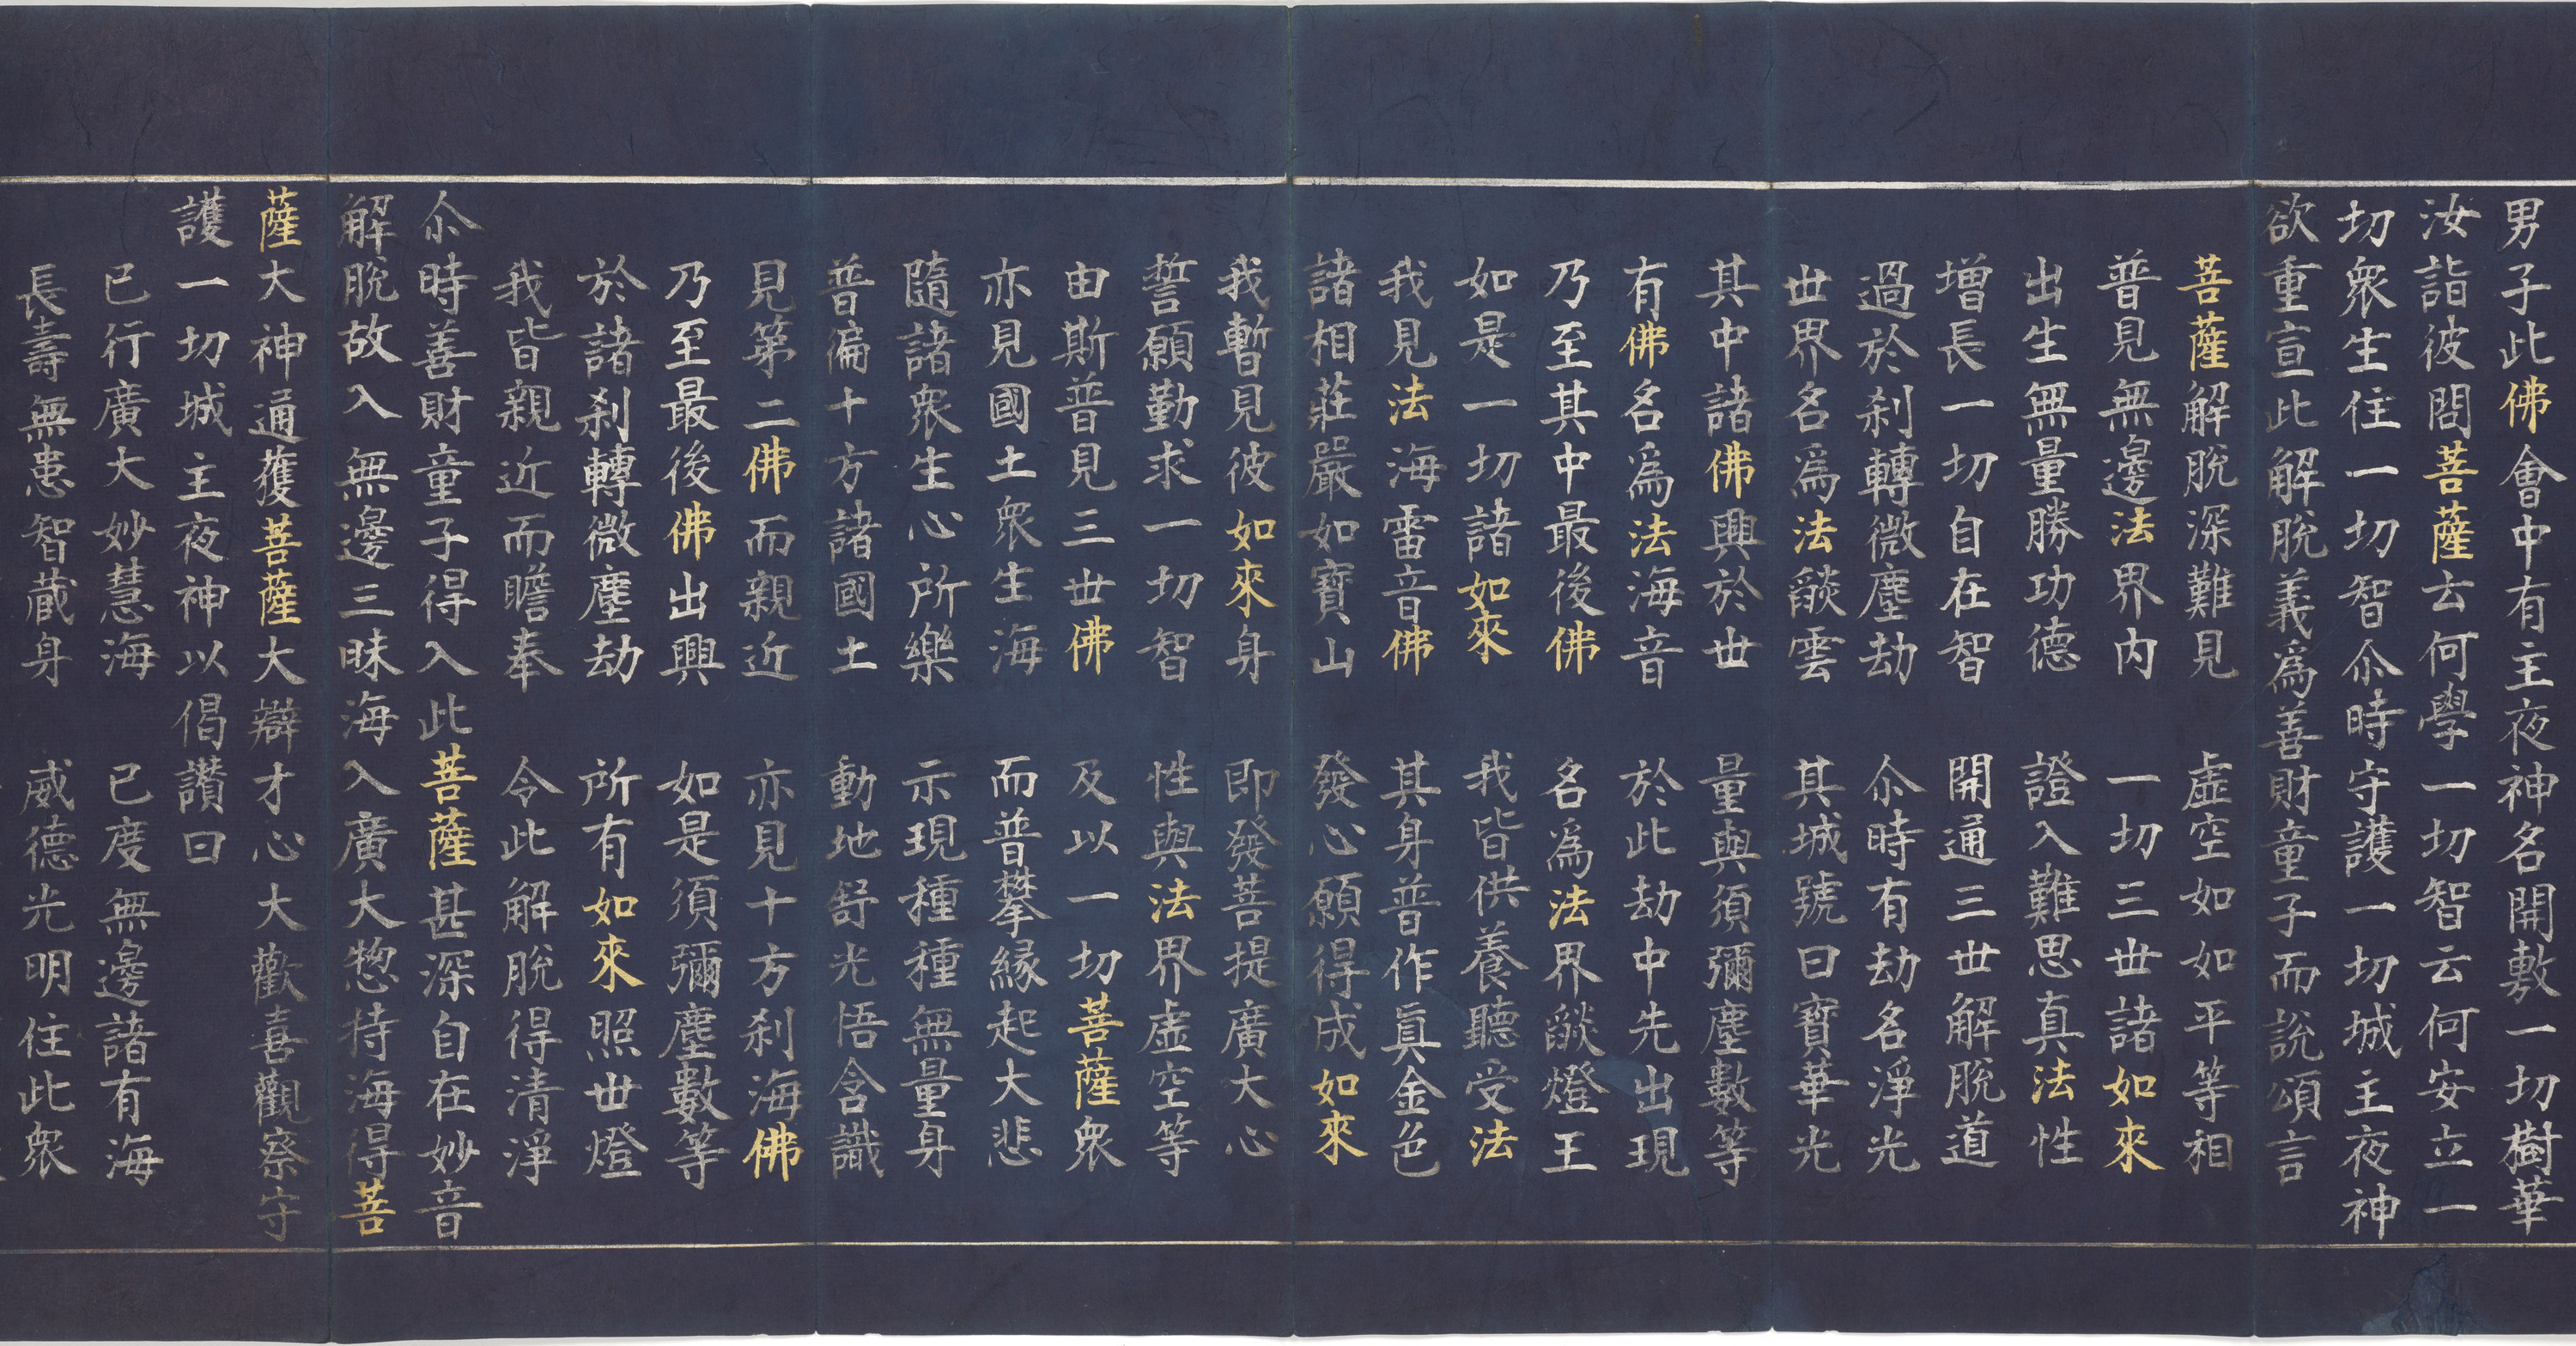 男子此佛會中有主夜神名開敷一切樹華
汝詣彼問菩薩云何學一切智云何安立一
切衆生住一切智尒時守護一切城主夜神
欲重宣此解脫義爲善財童子而說頌言
菩薩解脫深難見　虛空如如平等相
普見無邊法界內　一切三世諸如來
出生無量勝功德　證入難思真法性
增長一切自在智　開通三世解脫道
過於刹轉微塵劫　尒時有劫名淨光
世界名爲法燄雲　其城號曰寶華光
其中諸佛興於世　量與須彌塵數等
有佛名爲法海音　於此劫中先出現
乃至其中最後佛　名爲法界燄燈王
如是一切諸如來　我皆供養聽受法
我見法海雷音佛　其身普作眞金色
諸相莊嚴如寶山　發心願得成如來
我暫見彼如來身　即發菩提廣大心
誓願勤求一切智　性與法界虛空等
由斯普見三世佛　及以一切菩薩衆
亦見國土衆生海　而普攀緣起大悲
隨諸衆生心所樂　示現種種無量身
普徧十方諸國土　動地舒光悟含識
見第二佛而親近　亦見十方刹海佛
乃至最後佛出興　如是須彌塵數等
於諸刹轉微塵劫　所有如來照世燈
我皆親近而瞻奉　令此解脫得清淨
尒時善財童子得入此菩薩甚深自在妙音
解脫故入無邊三昧海入廣大惣持海得菩
薩大神通獲菩薩大辯才心大歡喜觀察守
護一切城主夜神以偈讚曰
已行廣大妙慧海　已度無邊諸有海
長壽無患智藏身　威德光明住此衆